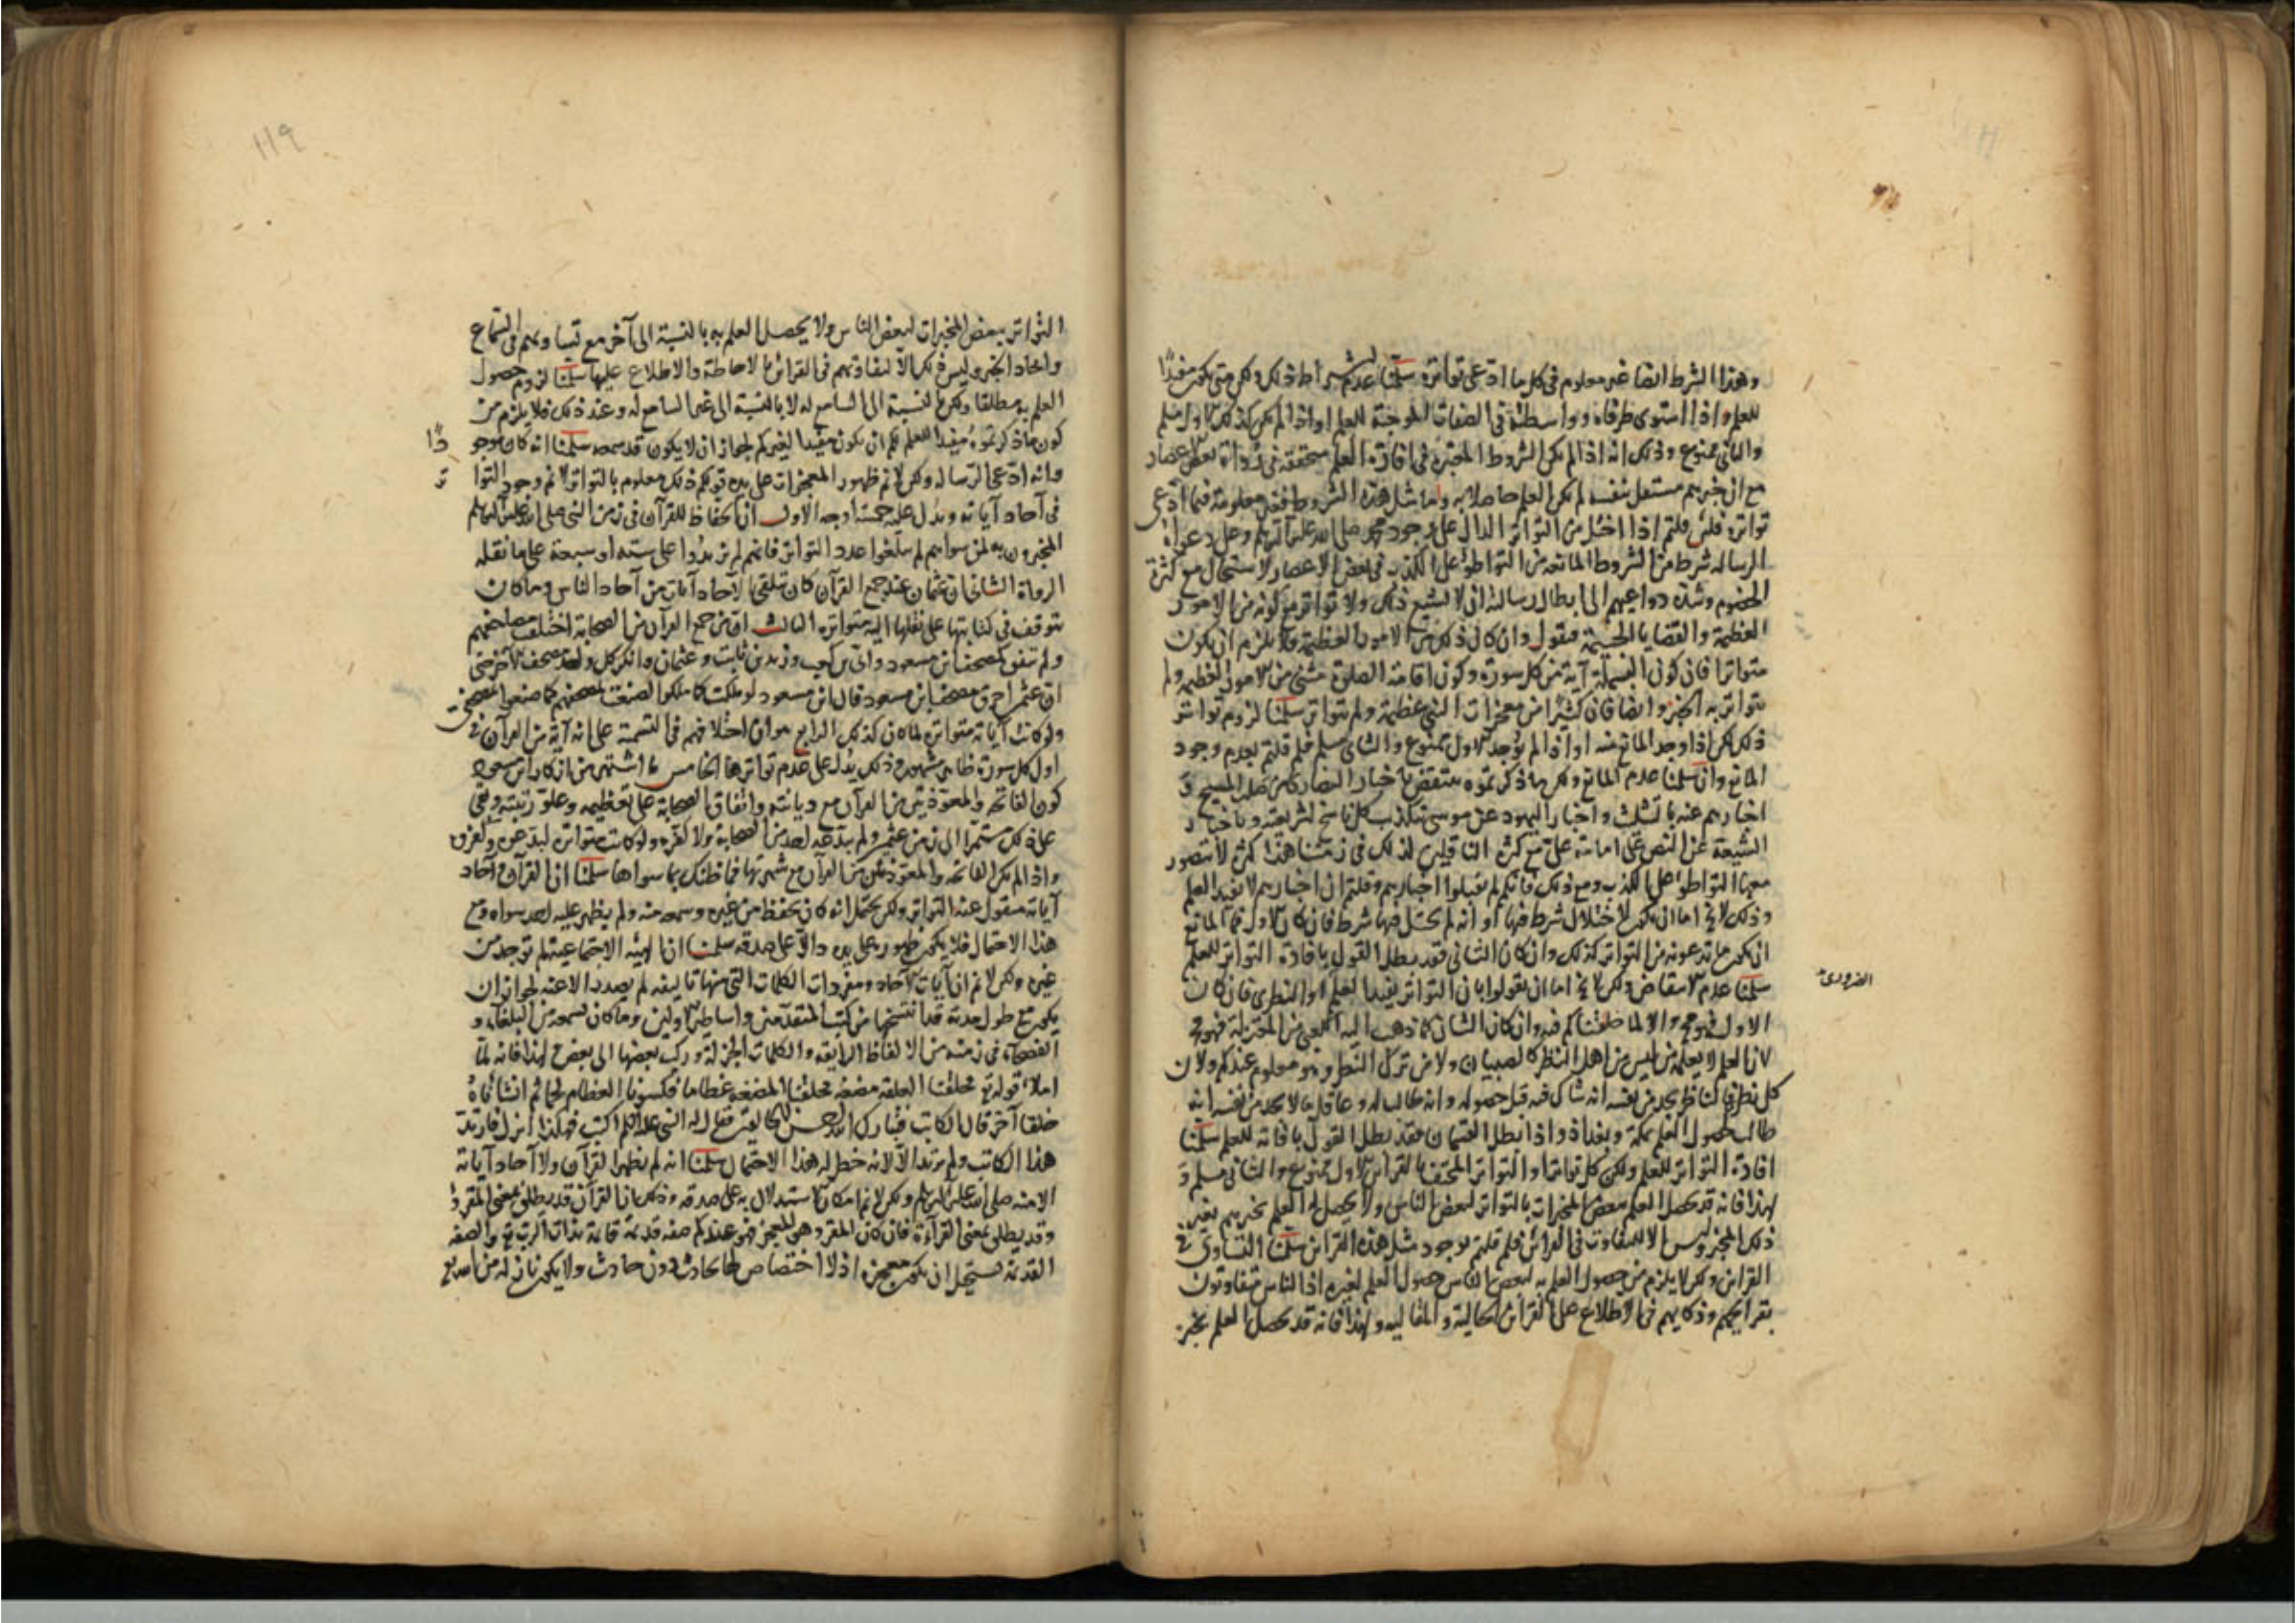 وهذا الشرط ايضا غير معلوم فى كل ما ادعى تواتره سلمنا عدم اشتراط ذلك ولكن متى يكون مفيدًا
للعلم واذا استوى طرفاه وواسطته فى الصفات الموجبة للعلم او اذا لم يكن كذلك الاول مسلم
والثانى ممنوع وذلك انه اذا لم يكن الشروط المعتبرة فى افادة العلم متحققة فى رواة بعض الاعصار
مع ان خبرهم مستقل بنفسه لم يكن العلم حاصلا به واما مثل هذه الشروط فغير معلومة فيما ادعى
تواتره فلئن قلتم اذا اختل من التواتر الدال على وجود محمد صلى الله عليه وسلم وعلى دعواه
الرسالة شرط من الشروط المانعة من التواطؤ على الكذب فى بعض الاعصار لاستحال مع كثرة
الخصوم وشدة دواعيهم الى ابطال رسالته ان لا يشيع ذلك ولا تواتر مع كونه من الامور
العظيمة والقضايا الجسيمة فنقول وان كان ذلك من الامور العظيمة فلا يلزم ان يكون
متواترا فان كون البسملة آية من كل سورة وكون اقامة الصلوة مثنى من الامور العظيمة ولم
يتواتر به الخبر وايضا فان كثيرا من معجزات النبى عظيمة ولم يتواتر سلمنا لزوم تواتر
ذلك لكن اذا وجد المانع منه او اذا لم يوجد الاول ممنوع والثانى مسلم فلم قلتم بعدم وجود
المانع وان سلمنا عدم المانع ولكن ما ذكرتموه منتقض باخبار النصارى عن صلب المسيح و
اخبارهم عنه بالتثليث واخبار اليهود عن موسى بتكذيب كل ناسخ لشريعته وباخبار
الشيعة عن النص على امامة على مع كثرة الناقلين لذلك فى زمننا هذا كثرة لا يتصور
معها التواطؤ على الكذب ومع ذلك فانكم لم تقبلوا اخبارهم وقلتم ان اخبارهم لا تفيد العلم
وذلك لا يخ اما ان يكون لاختلال شرط فيها او انه لم يختل فيها شرط فان كان الاول فما المانع
ان يكون ما تدعونه من التواتر كذلك وان كان الثانى فقد بطل القول بافادة التواتر للعلم
سلمنا عدم الانتقاض ولكن لا يخ اما ان تقولوا بان التواتر يفيد العلم او النظرى فان كان
الضرورى
الاول فهو مح والا لما خالفناكم فيه وان كان الثانى كما ذهب اليه الكعبى من المعتزلة فهو مح
لان العلم لا يعلمه من ليس من اهل النظر كالصبيان ولا من ترك النظر وهو معلوم عندكم ولان
كل نظرى فالناظر يجد من نفسه انه شاك فيه قبل حصوله وانه طالب له وعاقل ما لا يجد من نفسه انه
طالب لحصول العلم بمكة وبغداد واذا بطل القسمان فقد بطل القول بافادته للعلم سلمنا
افادة التواتر للعلم ولكن كل تواتر او التواتر المحتف بالقرائن الاول ممنوع والثانى مسلم و
لهذا فانه قد يحصل العلم ببعض المخبرات بالتواتر لبعض الناس ولا يحصل له العلم بخبرهم بغير
ذلك المخبر وليس الا للتفاوت فى القرائن فلم قلتم بوجود مثل هذه القرائن سلمنا التساوى فى
القرائن ولكن لا يلزم من حصول العلم به لبعض الناس حصول العلم لغيره اذ الناس متفاوتون
بقرايحهم وذكايهم فى الاطلاع على القرائن الحالية والمقالية ولهذا فانه قد يحصل العلم بخبر
١١٩
التواتر ببعض المخبرات لبعض الناس ولا يحصل العلم به بالنسبة الى آخر مع تساويهم فى السماع
واتحاد الخبر وليس ذلك الا لتفاوتهم فى القرائح والاحاطة والاطلاع عليها سلمنا لزوم حصول
العلم به مطلقا ولكن بالنسبة الى السامع له لا بالنسبة الى غير السامع له وعند ذلك فلا يلزم من
كون ما ذكرتموه مفيدا للعلم لكم ان يكون مفيدا لغيركم لجواز ان لا يكون قد سمعه سلمنا انه كان موجودًا
وانه ادعى الرسالة ولكن لا نم ظهور المعجزات على يده قولكم ذلك معلوم بالتواتر لا نم وجود التواتر
فى آحاد آياته ويدل عليه خمسة اوجه الاول ان الحفاظ للقرآن فى زمن النبى صلى الله عليه وسلم
المخبرون به لمن سواهم لم يبلغوا عدد التواتر فانهم لم يزيدوا على ستة او سبعة على ما نقله
الرواة الثانى ان عثمان عند جمع القرآن كان يتلقى الآحاد آيات من آحاد الناس وما كان
يتوقف فى كتابتها على نقلها اليه متواتره الثالث ان من جمع القرآن من الصحابة اختلف مصاحفهم
ولم تتفق كمصحف ابن مسعود وابى بن كعب وزيد بن ثابت وعثمان وانكر كل واحد مصحف الآخر حتى
ان عثمن احرق مصحف ابن مسعود فقال ابن مسعود لو ملكت كما ملكوا لصنعت بمصحفهم كما صنعوا بمصحفى
ولو كانت آياته متواترة لما كان كذلك الرابع هو ان اختلافهم فى التسمية على انه آية من القرآن فى
اول كل سورة ظاهر مشهور وذلك يدل على عدم تواترها الخامس ما اشتهر من انكار ابن مسعود
كون الفاتحة والمعوذتين من القرآن مع ديانته واتفاق الصحابة على تعظيمه وعلو رتبته وبقى
على ذلك مستمرا الى زمن عثمن ولم يبدعه احد من الصحابة ولا كفره ولو كانت متواتره لبدعوه وكفروه
واذا لم يكن الفاتحة والمعوذتين من القرآن مع شهرتها فما ظنك بما سواها سلمنا ان القرآن وآحاد
آياته منقول عنه التواتر ولكن يحتمل انه كان يحفظه من غيره وسمعه منه ولم يظهر عليه احد سواه ومع
هذا الاحتمال فلا يكون ظهوره على يده دالا على صدقه سلمنا ان الهيئة الاجتماعية لم توجد من
غيره ولكن لا نم ان آيات الآحاد ومفردات الكلمات التى منها تاليفه لم يصدر الا عنه لجواز ان
يكون مع طول مدته قد انتسخها من كتب المتقدمين واساطير الاولين وما كان يسمعه من البلغاء و
الفصحاء فى زمنه من الالفاظ الرايقة والكلمات الجزلة وركب بعضها الى بعض ولهذا فانه لما
املا قوله تع فخلقنا العلقة مضغة فخلقنا المضغة عظاما فكسونا العظام لحما ثم انشأناه
خلقا آخر قال الكاتب فتبارك الله احسن الخالقين فقال له النبى عليه السلام اكتب فهكذا انزل فارتد
هذا الكاتب ولم يرتد الا لانه خطر له هذا الاحتمال سلمنا انه لم يظهر القرآن ولا آحاد آياته
الا منه صلى الله عليه وسلم ولكن لا نم امكان الاستدلال به على صدقه وذلك ان القرآن قد يطلق بمعنى المقروء
وقد يطلق بمعنى القراءة فان كان المقروء هو المعجز فهو عندكم صفة قديمة قائمة بذات الرب تع والصفة
القديمة يستحيل ان يكون معجزة اذ لا اختصاص لها بحادث دون حادث ولا يكون نازلة من